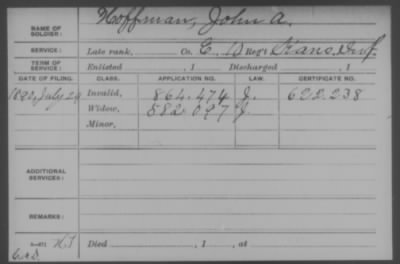 NAME OF SOLDIER: Hoffman, John A.
SERVICE: Late rank, Co. E, 13 Reg't Kans. Inf.
TERM OF SERVICE: Enlisted , 1 Discharged , 1
DATE OF FILING. CLASS. APPLICATION NO. LAW. CERTIFICATE NO.
1890, July 29 Invalid, 864.474 J. 622.238
Widow, 882.097 J.
Minor,
ADDITIONAL SERVICES:
REMARKS:
Died , 1 , at